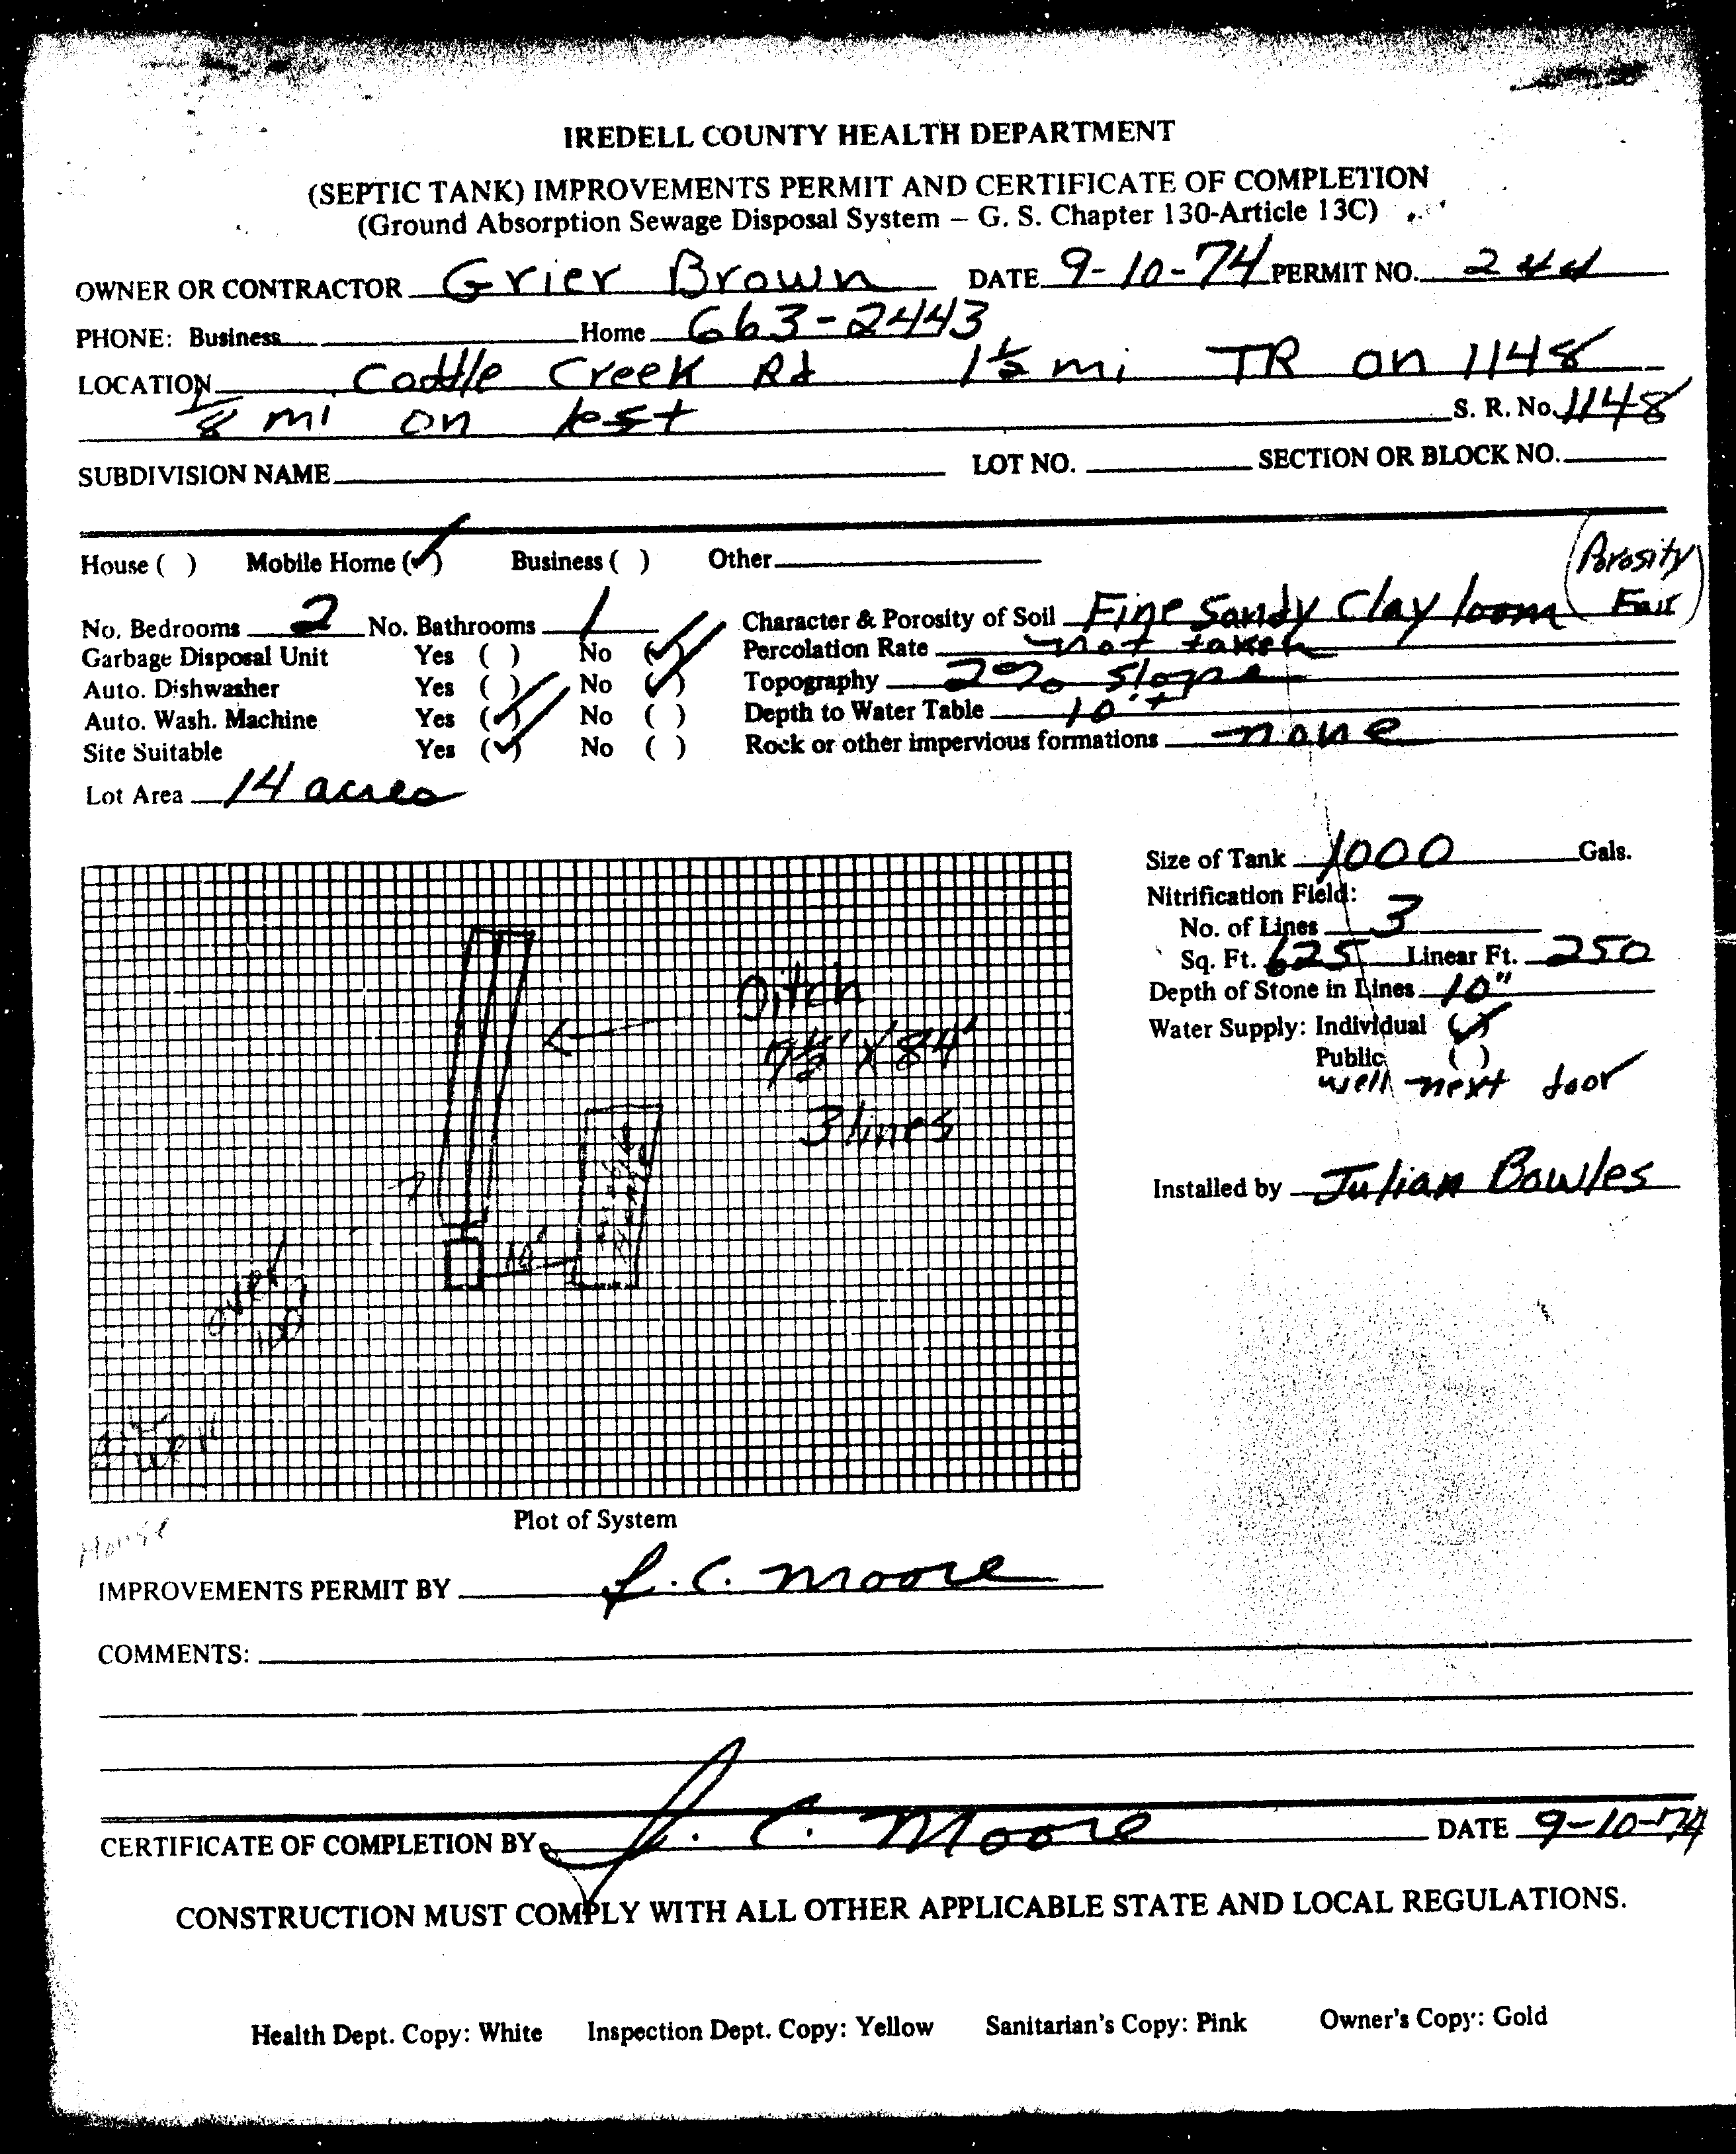 IREDELL COUNTY HEALTH DEPARTMENT
(SEPTIC TANK) IMPROVEMENTS PERMIT AND CERTIFICATE OF COMPLETION
(Ground Absorption Sewage Disposal System — G. S. Chapter 130-Article 13C)
OWNER OR CONTRACTOR Grier Brown DATE 9-10-74 PERMIT NO. 244
PHONE: Business Home 663-2443
LOCATION Coddle Creek Rd 1½ mi TR on 1148
1/8 mi on left S. R. No. 1148
SUBDIVISION NAME LOT NO. SECTION OR BLOCK NO.
House ( ) Mobile Home (✓) Business ( ) Other (Porosity
No. Bedrooms 2 No. Bathrooms 1 Character & Porosity of Soil Fine Sandy Clay loom Fair)
Garbage Disposal Unit Yes ( ) No (✓) Percolation Rate not taken
Auto. Dishwasher Yes ( ) No (✓) Topography 2% slope
Auto. Wash. Machine Yes (✓) No ( ) Depth to Water Table 10'+
Site Suitable Yes (✓) No ( ) Rock or other impervious formations none
Lot Area 14 acres
Size of Tank 1000 Gals.
Nitrification Field:
No. of Lines 3
Sq. Ft. 625 Linear Ft. 250
Depth of Stone in Lines 10"
Water Supply: Individual (✓)
Public ( )
well next door
Installed by Julian Bowles
Ditch
3 lines
10'
over
100'
well
Plot of System
House
IMPROVEMENTS PERMIT BY J. C. Moore
COMMENTS:
CERTIFICATE OF COMPLETION BY J. C. Moore DATE 9-10-74
CONSTRUCTION MUST COMPLY WITH ALL OTHER APPLICABLE STATE AND LOCAL REGULATIONS.
Health Dept. Copy: White Inspection Dept. Copy: Yellow Sanitarian's Copy: Pink Owner's Copy: Gold